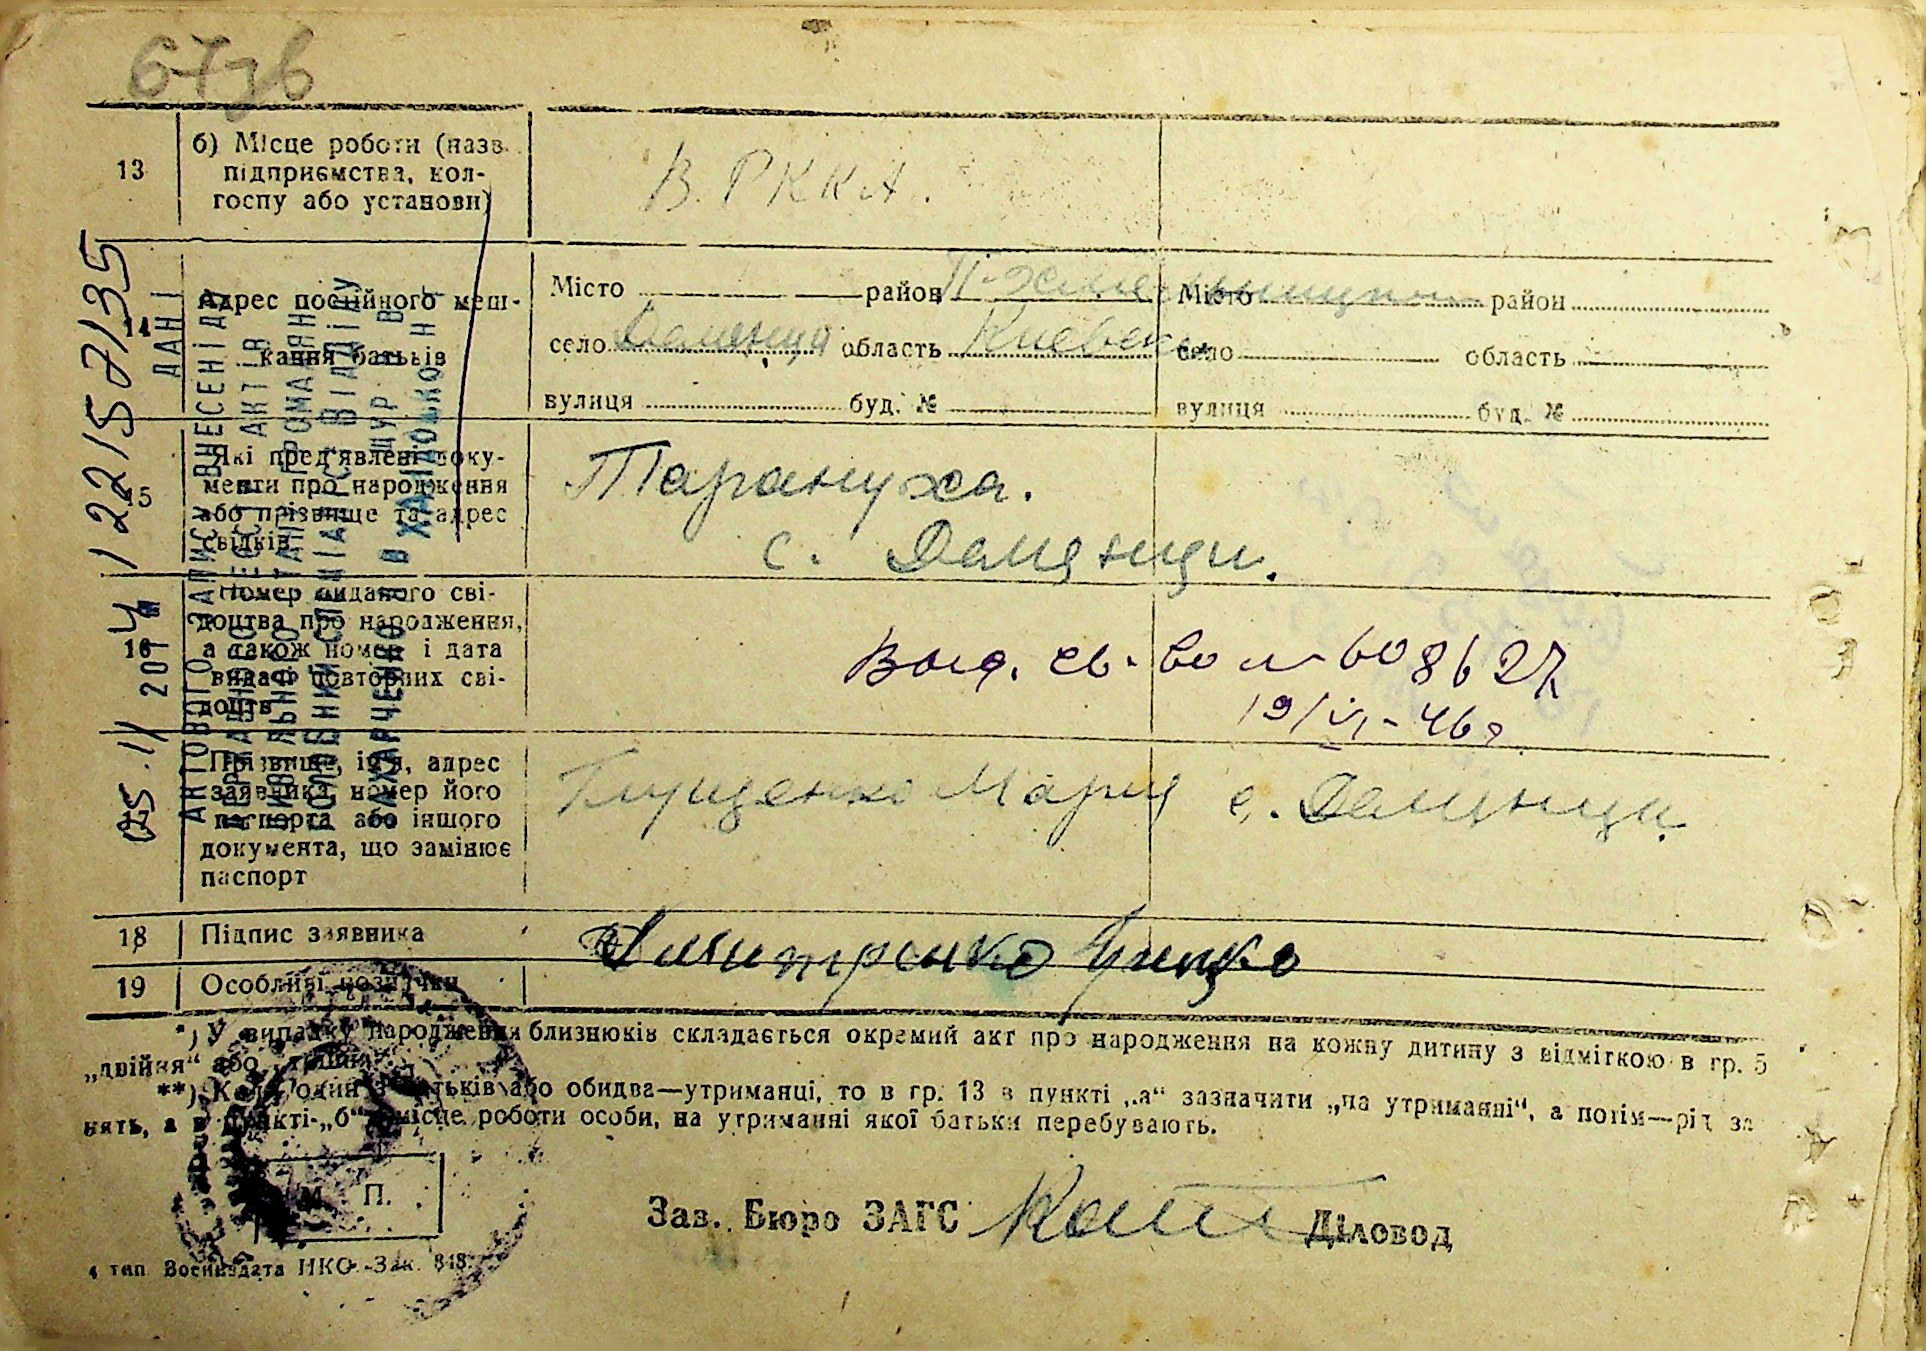 67зв
13
б) Місце роботи (назв.
підприємства, кол-
госпу або установи)
В. РККА.
14
Адрес постійного меш-
кання батьків
Місто район
село Демянци область Киевск
вулиця буд. №
Місто район
село область
вулиця буд. №
15
Які пред'явлені доку-
менти про народження
або прізвище та адрес
свідків
Тарануха.
с. Демянци.
16
Номер виданого сві-
доцтва про народження,
а також номер і дата
видачі повторних сві-
доцтв
Выд. св-во № 608627
19/VI-46г
Прізвище, ім'я, адрес
заявника, номер його
паспорта або іншого
документа, що замінює
паспорт
Глущенко Мария с. Демянци.
18
Підпис заявника
Дмитренко
19
Особливі позначки
*) У випадку народження близнюків складається окремий акт про народження на кожну дитину з відміткою в гр. 5
„двійня“ або „трійня“.
**) Коли один з батьків або обидва—утриманці, то в гр. 13 в пункті „а“ зазначити „на утриманні“, а потім—рід за
нять, а в пункті „б“ місце роботи особи, на утриманні якої батьки перебувають.
М. П.
Зав. Бюро ЗАГС
Діловод
4 тип. Воениздата НКО. Зак. 848
ДАНІ
АКТОВОГО ЗАПИСУ ВНЕСЕНІ ДО
ДЕРЖАВНОГО РЕЄСТРУ АКТІВ
ЦИВІЛЬНОГО СТАНУ ГРОМАДЯН
ГОЛОВНИЙ СПЕЦІАЛІСТ ВІДДІЛУ
ЗАХАРЧЕНКО
25.11 2014 122157135